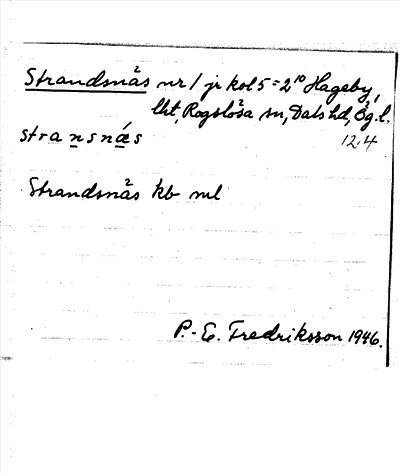 Strandsnäs nr 1 jr kol 5 = 2¹⁰ Hageby,
lht, Rogslösa sn, Dals hd, Ög. l.
stransnǽs 12.4
Strandsnäs kb ml
P.-E. Fredriksson 1946.